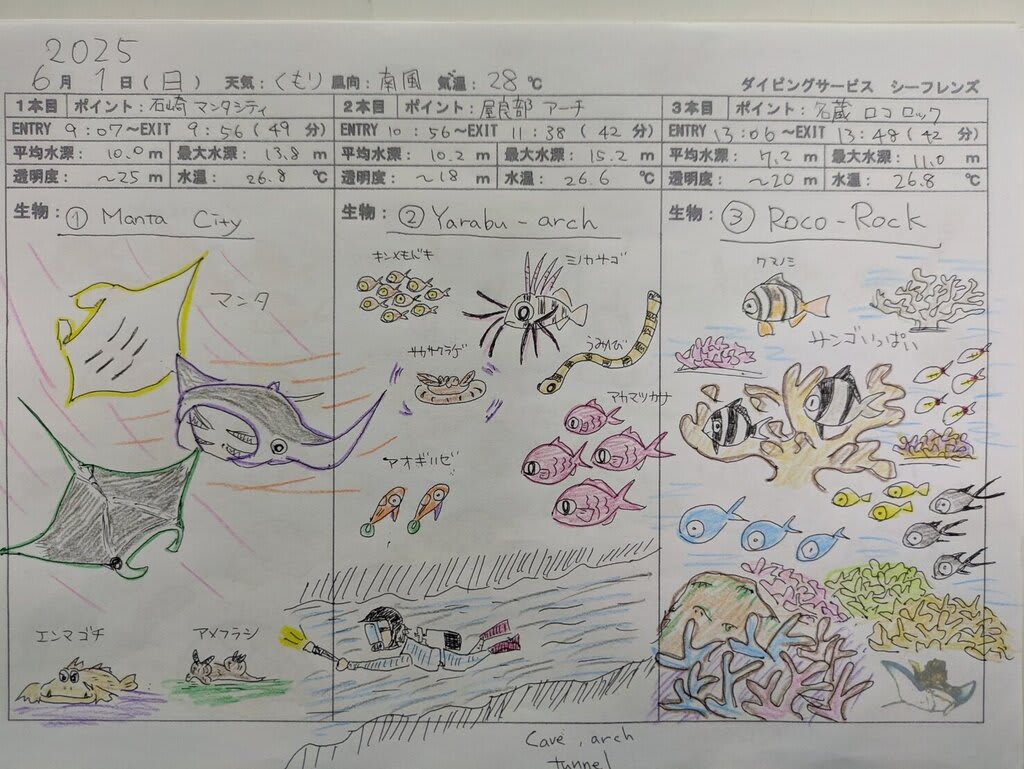 2025
6月 1日(日) 天気:くもり 風向:南風 気温:28℃ ダイビングサービス シーフレンズ
1本目 ポイント:石崎 マンタシティ
ENTRY 9:07〜EXIT 9:56(49 分)
平均水深: 10.0 m 最大水深: 13.8 m
透明度: 〜25 m 水温: 26.8 ℃
生物: ① Manta City
マンタ
エンマゴチ
アメフラシ
2本目 ポイント:屋良部 アーチ
ENTRY 10:56〜EXIT 11:38(42 分)
平均水深: 10.2 m 最大水深: 15.2 m
透明度: 〜18 m 水温: 26.6 ℃
生物: ② Yarabu-arch
キンメモドキ
ミノカサゴ
サカサクラゲ
うみへび
アカマツカサ
アオギハゼ
Cave, arch
tunnel
3本目 ポイント:名蔵 ロコロック
ENTRY 13:06〜EXIT 13:48(42 分)
平均水深: 7.2 m 最大水深: 11.0 m
透明度: 〜20 m 水温: 26.8 ℃
生物: ③ Roco-Rock
クマノミ
サンゴいっぱい